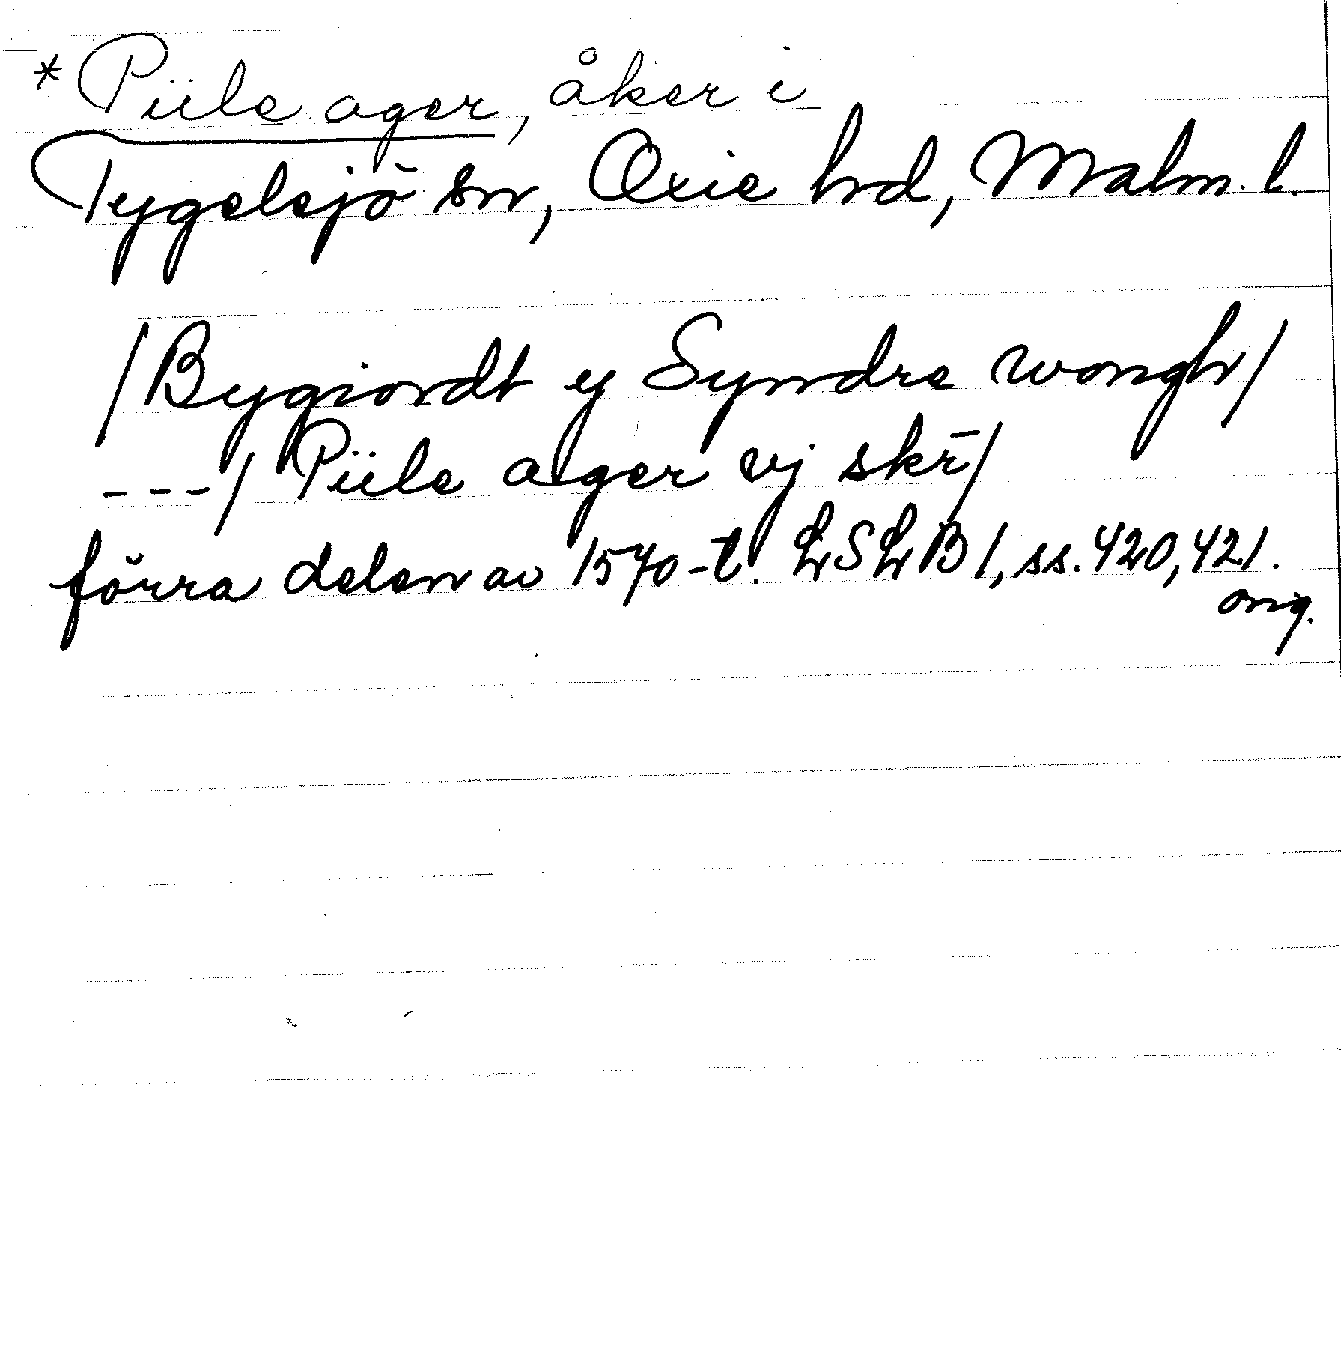 *Piile ager, åker i
Tygelsjö sn, Oxie hd, Malm. l.
/Bygiordt ij Syndre wongh/
---/ Piile ager vj skr̄/
förra delen av 1570-t. LSLB 1, ss. 420, 421.
orig.